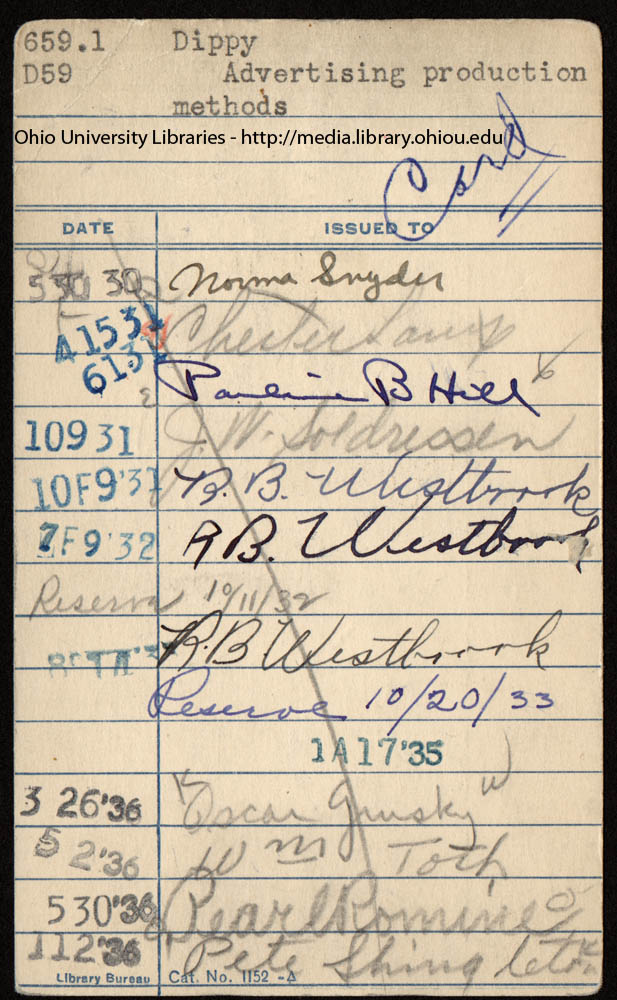 659.1 Dippy
D59 Advertising production
methods
Ohio University Libraries - http://media.library.ohiou.edu
Card
DATE ISSUED TO
530 30 Norma Snyder
41531 Chester
6131 Pauline B Hill
10931 J. W.
10F9'31 R. B. Westbrook
7F9'32 R B. Westbrook
Reserve 10/11/32
R.B Westbrook
Reserve 10/20/33
1A17'35
3 26'36 "Oscar Grusky"
5 2'36 Wm Toth
530'36 Pearl Romine
112'36 Pete Shingleton
Library Bureau Cat. No. 1152 -A